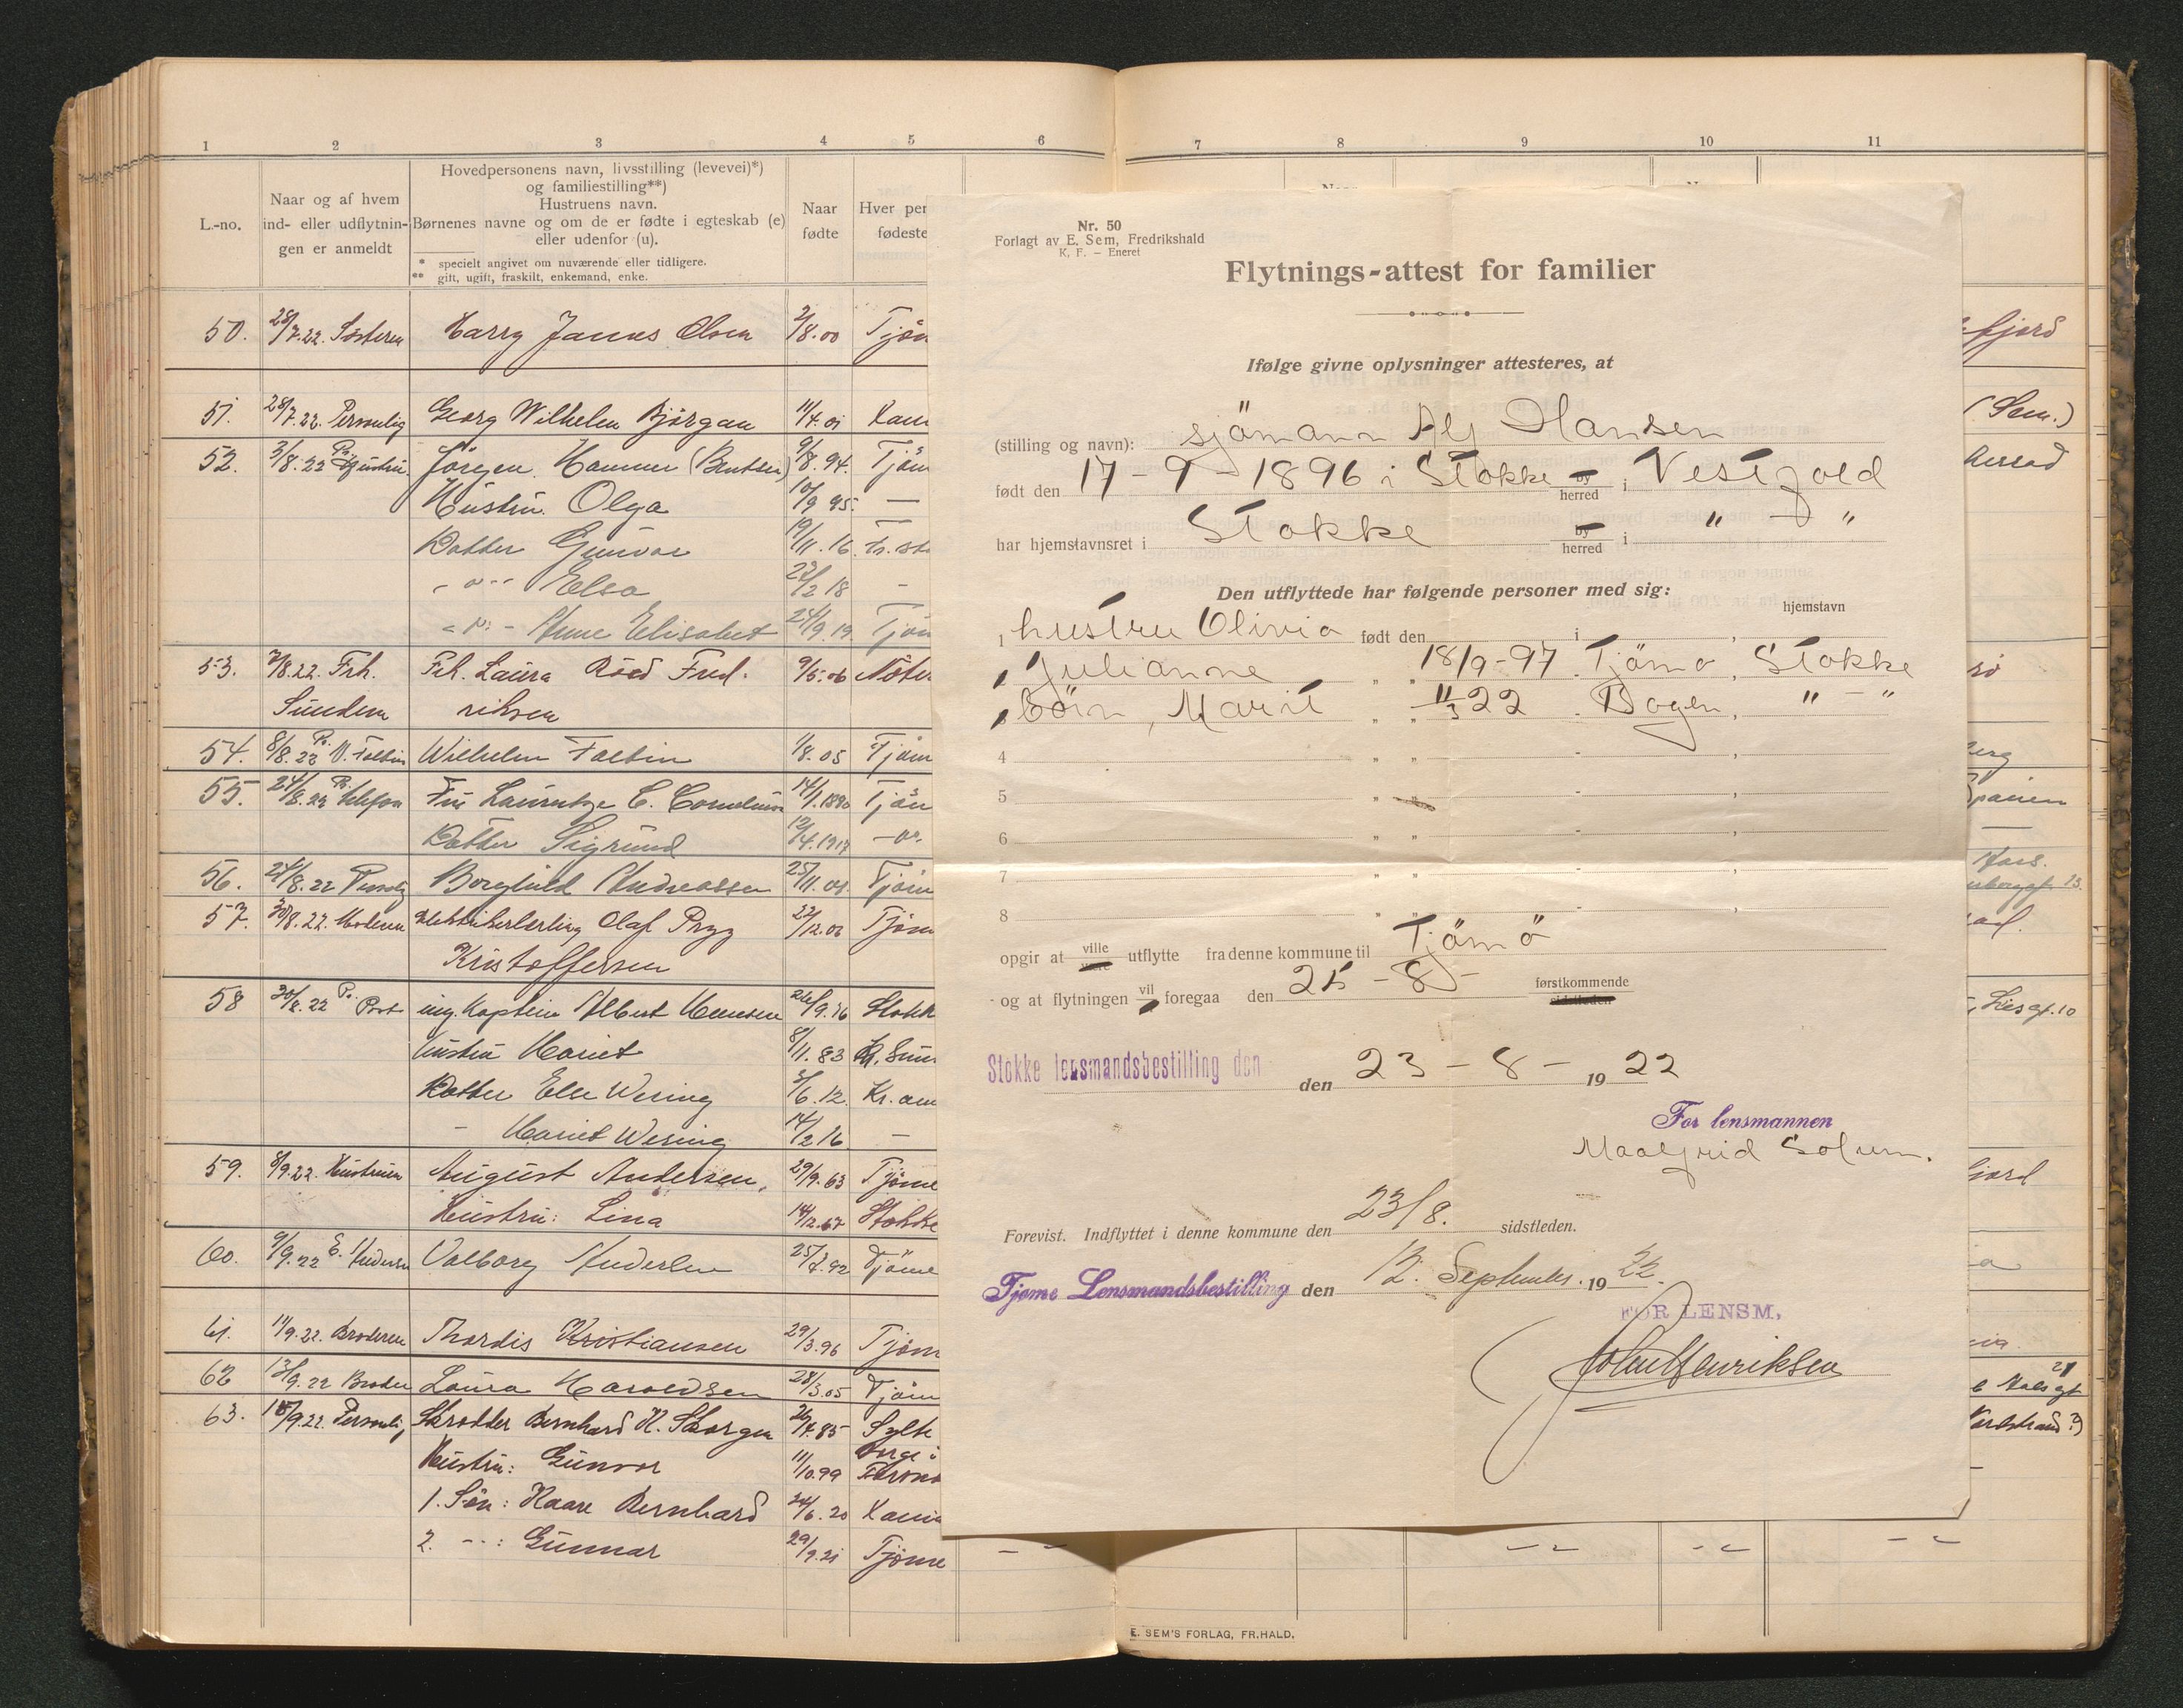 1 2 3 4 5 6 7 8 9 10 11
L.-no.
Naar og af hvem
ind- eller udflytnin-
gen er anmeldt
Hovedpersonens navn, livsstilling (levevei)*)
og familiestilling**)
Hustruens navn.
Børnenes navne og om de er fødte i egteskab (e)
eller udenfor (u).
* specielt angivet om nuværende eller tidligere.
** gift, ugift, fraskilt, enkemand, enke.
Naar
fødte
Hver per
fødeste
50. 28/7.22. Søsteren Harry Janus Olsen 2/8.00 Tjøm
51. 28/7.22. Personlig Georg Wilhelm Bjørgan 11/4.01
52. 3/8.22 Pr. Hustru. Jörgen Hammer (Bentsen) 9/8.94. Tjøm
Hustru. Olga 10/9 95. —
Datter Gunvor 19/11.16
Elsa 22/2 18 -
Anne Elisabet 24/9 19. Tjøm
53. 7/8.22. Frk. Frk. Laura Röed Fred. 9/5.06 Nøter
riksen
54. 8/8.22 Pr. Wilhelm 1/8.05 Tjøm
55. 24/8.22 Pr. telefon Fru C. Cornelius 14/1.1890 Tjøm
Datter Sigrund 12/4.1917
56. 24/8.22 Personlig Borghild Andreassen 25/11.01. Tjøm
57. 30/8.22. Moderen Olaf Pryz 22/12.06 Tjøm
Kristoffersen
58 30/8.22 Pr. Post Kaptein Albert 26/9.76 Stokk
Hustru Hariet 8/11.83
Datter Else Wering 3/6.12. Kr.
- Hariet Wering 14/2 16 —
59. 8/9.22. Hustruen August Andersen, 29/9.63 Tjøme
Hustru: Lina 14/12.67 Stokke
60. 9/9.22 E. Andersen Valborg Andersen 25/7.92 Tjøme
61. 11/9.22. Broderen Thordis Kristiansen 29/3.96 Tjøm
62 13/9.22 Broder Laura Haraldsen 28/3.05 Tjøm
63. 15/9.22. Personlig Skrædder Bernhard K. Skorgen 26/4.85 Sylte
Hustru: Gunvor 11/10.99
1. Søn: Kaare Bernhard 24/6.20
2. Gunnar 29/9.21 Tjøme
Nr. 50
Forlagt av E. Sem, Fredrikshald
K. F. – Eneret
Flytnings-attest for familier
Ifølge givne oplysninger attesteres, at
(stilling og navn): sjömann Alf Hansen
født den 17-9-1896 i Stokke by herred i Vestfold
har hjemstavnsret i Stokke by herred i " - "
Den utflyttede har følgende personer med sig:
hjemstavn
1 hustru Olivia født den i ,
Julianne " " 18/9-97. Tjömø, Stokke
Börn, Marit " " 11/3 22 . Bogen, " - "
4 " " - ,
5 " " - ,
6 " " - ,
7 " " - ,
8 " " - ,
opgir at ville være utflytte fra denne kommune til Tjömö
og at flytningen vil foregaa den 25-8- førstkommende sidstleden
Stokke lensmandsbestilling den den 23-8- 1922
For lensmannen
Maalfrid Solum.
Forevist. Indflyttet i denne kommune den 23/8. sidstleden.
Tjømø Lensmandsbestilling den 12. September. 1922.
FOR LENSM.
John Henriksen
fjord
(Sem.)
berg
gt. 10
fjord
E. SEM'S FORLAG, FR.HALD.